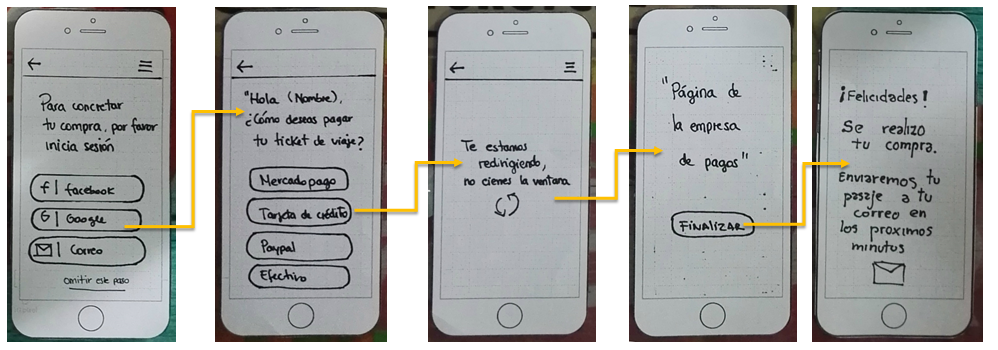 Para concretar
tu compra, por favor
inicia sesión
f | facebook
G | Google
| Correo
omitir este paso
"Hola (Nombre),
¿Cómo deseas pagar
tu ticket de viaje?
Mercadopago
Tarjeta de crédito
Paypal
Efectivo
Te estamos
redirigiendo,
no cierres la ventana
"Página de
la empresa
de pagos"
FINALIZAR
¡Felicidades!
Se realizo
tu compra.
Enviaremos tu
pasaje a tu
correo en
los proximos
minutos